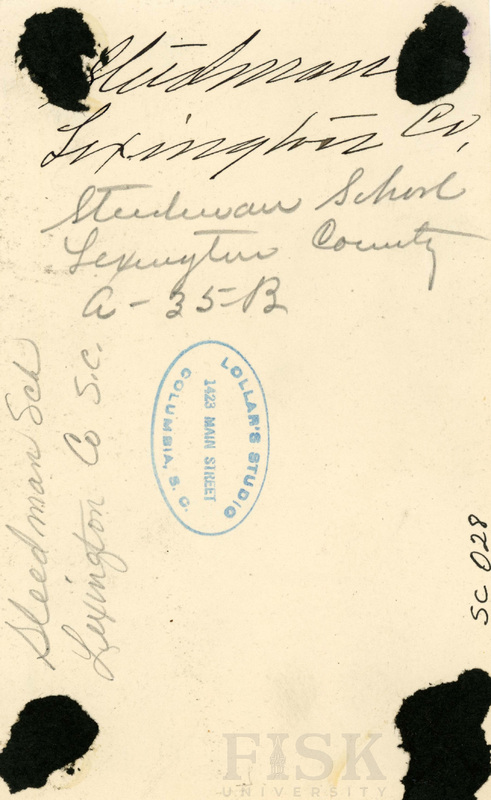 Steedman
Lexington Co,
Steedman School
Lexington County
A-35-B
Steedman Sch
Lexington Co S.C.
LOLLAR'S STUDIO
1423 MAIN STREET
COLUMBIA, S. C.
SC 028
FISK
UNIVERSITY